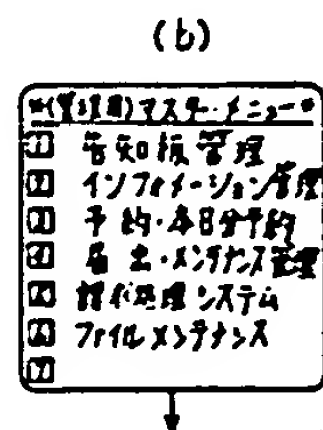 (b)
*(管理用)マスター・メニュー*
1 告知板管理
2 インフォメーション管理
3 予約・本日分予約
4 届出・メンテナンス管理
5 システム
6 ファイルメンテナンス
7